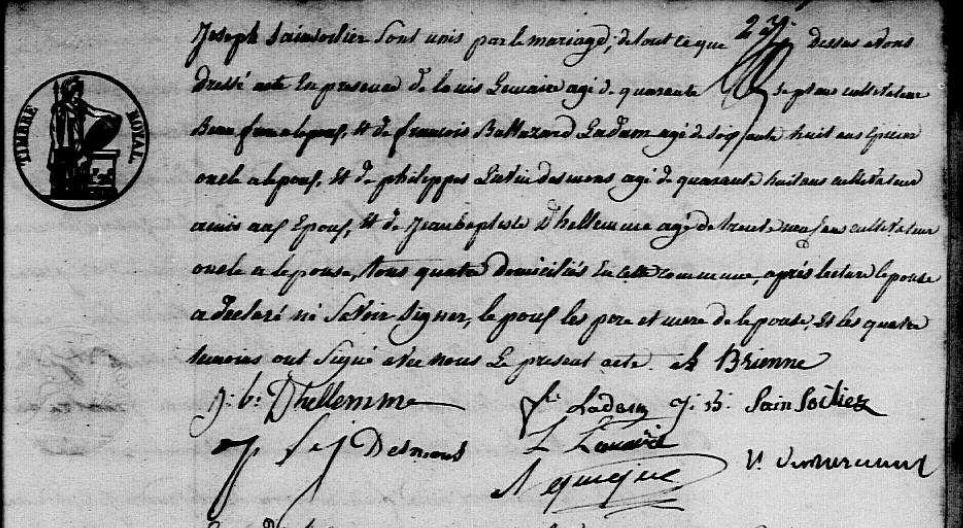 Joseph Sainsolier sont unis par le mariage, de tout ce que 23e dessus avons
dressé acte en presence de Louis Lemaire agé de quarante sept ans cultivateur
Beaufrere a lepoux, et de francois Baltazard Ladam agé de soixante huit ans Epicier
oncle a lepoux, et de philippe desmons agé de quarante huit ans cultivateur
amis aux Epoux, et de Jean baptiste D'hellemme agé de trente neuf ans cultivateur
oncle a lepouse, tous quatre domiciliés en cette commune, après lecture lepouse
a declaré ni savoir signer, lepoux les pere et mere de lepouse, et les quatre
temoins ont signé avec nous Le present acte. Brienne
J: b: Dhellemme Ladam J: B: Sain Solliez
Desmons L
V
TIMBRE ROYAL